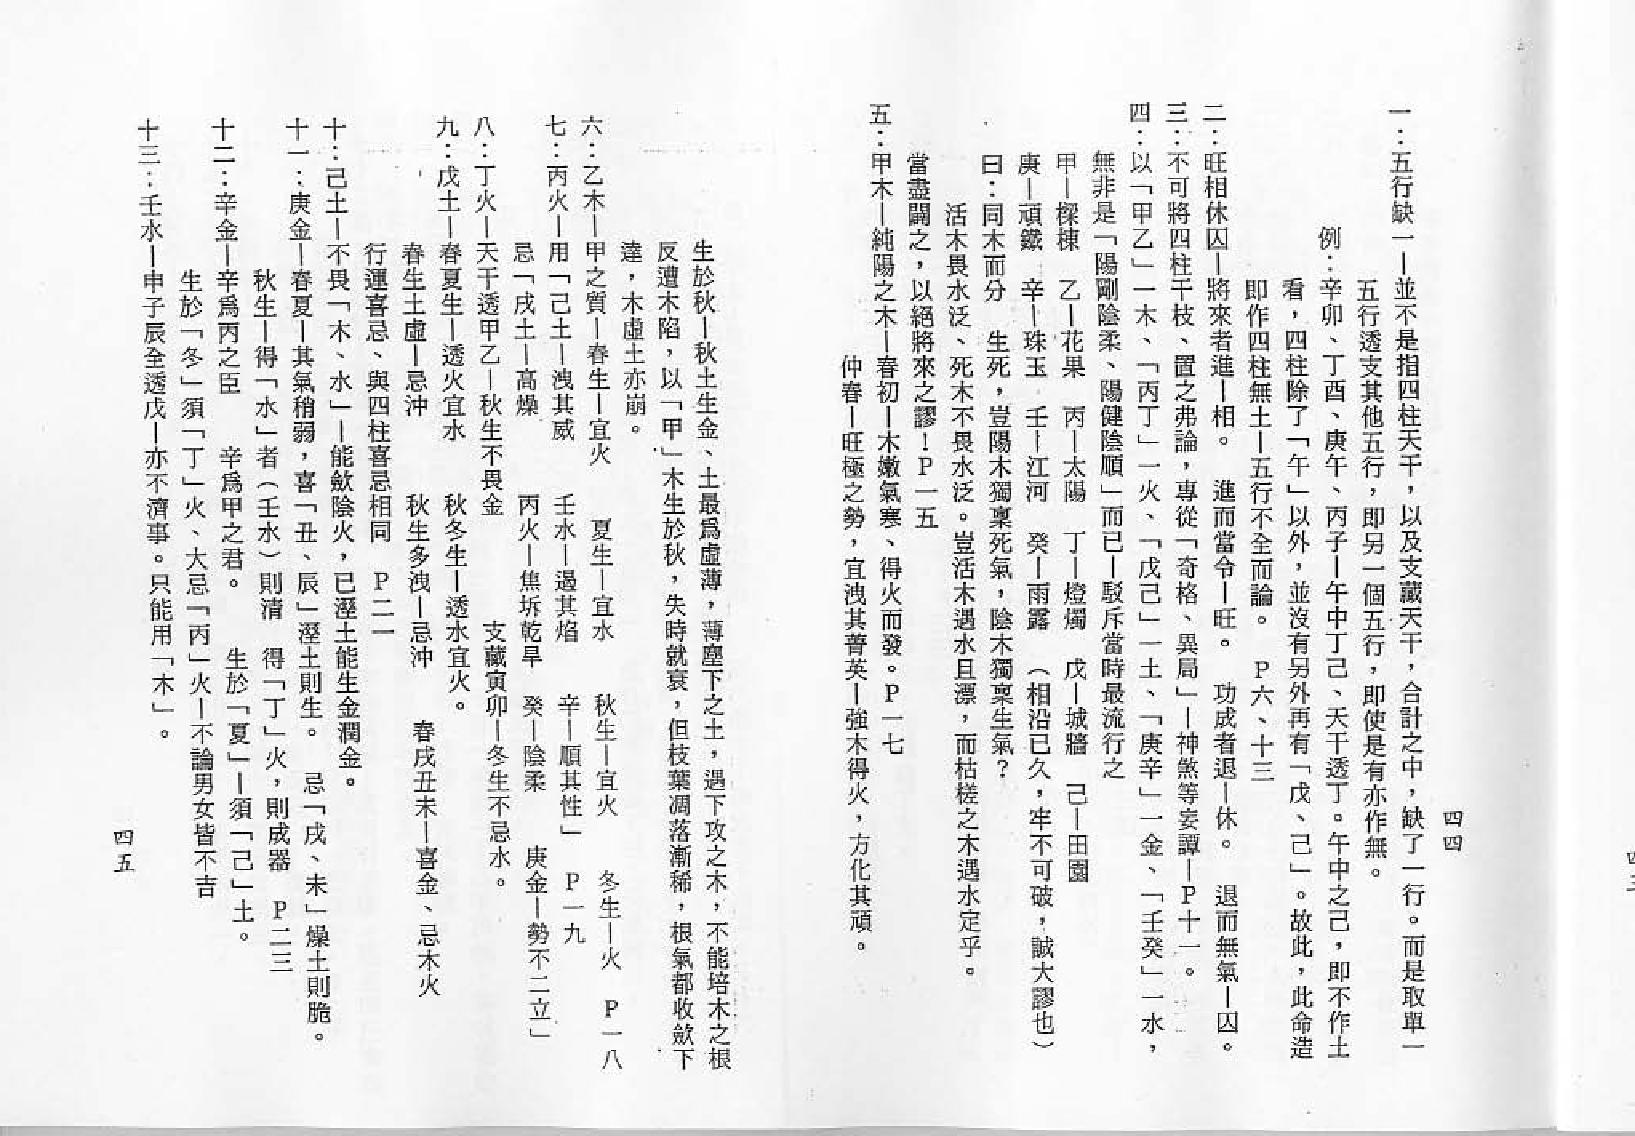 四四
一：五行缺一—並不是指四柱天干，以及支藏天干，合計之中，缺了一行。而是取單一
五行透支其他五行，即另一個五行，即使是有亦作無。
例：辛卯、丁酉、庚午、丙子—午中丁己、天干透丁。午中之己，即不作土
看，四柱除了「午」以外，並沒有另外再有「戊、己」。故此，此命造
即作四柱無土—五行不全而論。 P六、十三
二：旺相休囚—將來者進—相。 進而當令—旺。 功成者退—休。 退而無氣—囚。
三：不可將四柱干枝、置之弗論，專從「奇格、異局」—神煞等妄譚—P十一。
四：以「甲乙」一木、「丙丁」一火、「戊己」一土、「庚辛」一金、「壬癸」一水，
無非是「陽剛陰柔、陽健陰順」而已—駁斥當時最流行之
甲—樑棟 乙—花果 丙—太陽 丁—燈燭 戊—城牆 己—田園
庚—頑鐵 辛—珠玉 壬—江河 癸—雨露 （相沿已久，牢不可破，誠大謬也）
曰：同木而分 生死，豈陽木獨稟死氣，陰木獨稟生氣？
活木畏水泛、死木不畏水泛。豈活木遇水且漂，而枯槎之木遇水定乎。
當盡闢之，以絕將來之謬！P一五
五：甲木—純陽之木—春初—木嫩氣寒、得火而發。P一七
仲春—旺極之勢，宜洩其菁英—強木得火，方化其頑。
生於秋—秋土生金、土最爲虛薄，薄塵下之土，遇下攻之木，不能培木之根
反遭木陷，以「甲」木生於秋，失時就衰，但枝葉凋落漸稀，根氣都收斂下
達，木虛土亦崩。
六：乙木—甲之質—春生—宜火 夏生—宜水 秋生—宜火 冬生—火 P一八
七：丙火—用「己土—洩其威 壬水—遏其焰 辛—順其性」 P一九
忌「戌土—高燥 丙火—焦坼乾旱 癸—陰柔 庚金—勢不二立」
八：丁火—天干透甲乙—秋生不畏金 支藏寅卯—冬生不忌水。
九：戊土—春夏生—透火宜水 秋冬生—透水宜火。
春生土虛—忌沖 秋生多洩—忌沖 春戌丑未—喜金、忌木火
行運喜忌、與四柱喜忌相同 P二一
十：己土—不畏「木、水」—能斂陰火，已溼土能生金潤金。
十一：庚金—春夏—其氣稍弱，喜「丑、辰」溼土則生。 忌「戌、未」燥土則脆。
秋生—得「水」者（壬水）則清 得「丁」火，則成器 P二三
十二：辛金—辛爲丙之臣 辛爲甲之君。 生於「夏」—須「己」土。
生於「冬」須「丁」火、大忌「丙」火—不論男女皆不吉
十三：壬水—申子辰全透戊—亦不濟事。只能用「木」。
四五